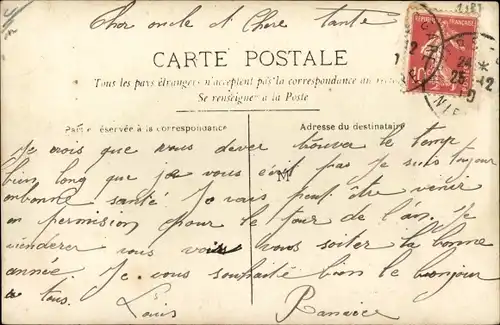 Cher oncle et Chere tante
CARTE POSTALE
Tous les pays étrangers n'acceptent pas la correspondance au
Se renseigner à la Poste
Partie réservée à la correspondance
Adresse du destinataire
RÉPUBLIQUE FRANÇAISE
Je crois que vous dever trouva le temp
bien long que je vous écrit pas Je suis toujour
en bonne santé Je vous peut être venir
en permission pour le tour de l'an. Je
vienderer vous voir vous soiter la bonne
année Je vous souhaite bien le bonjour
a tous. Louis
M